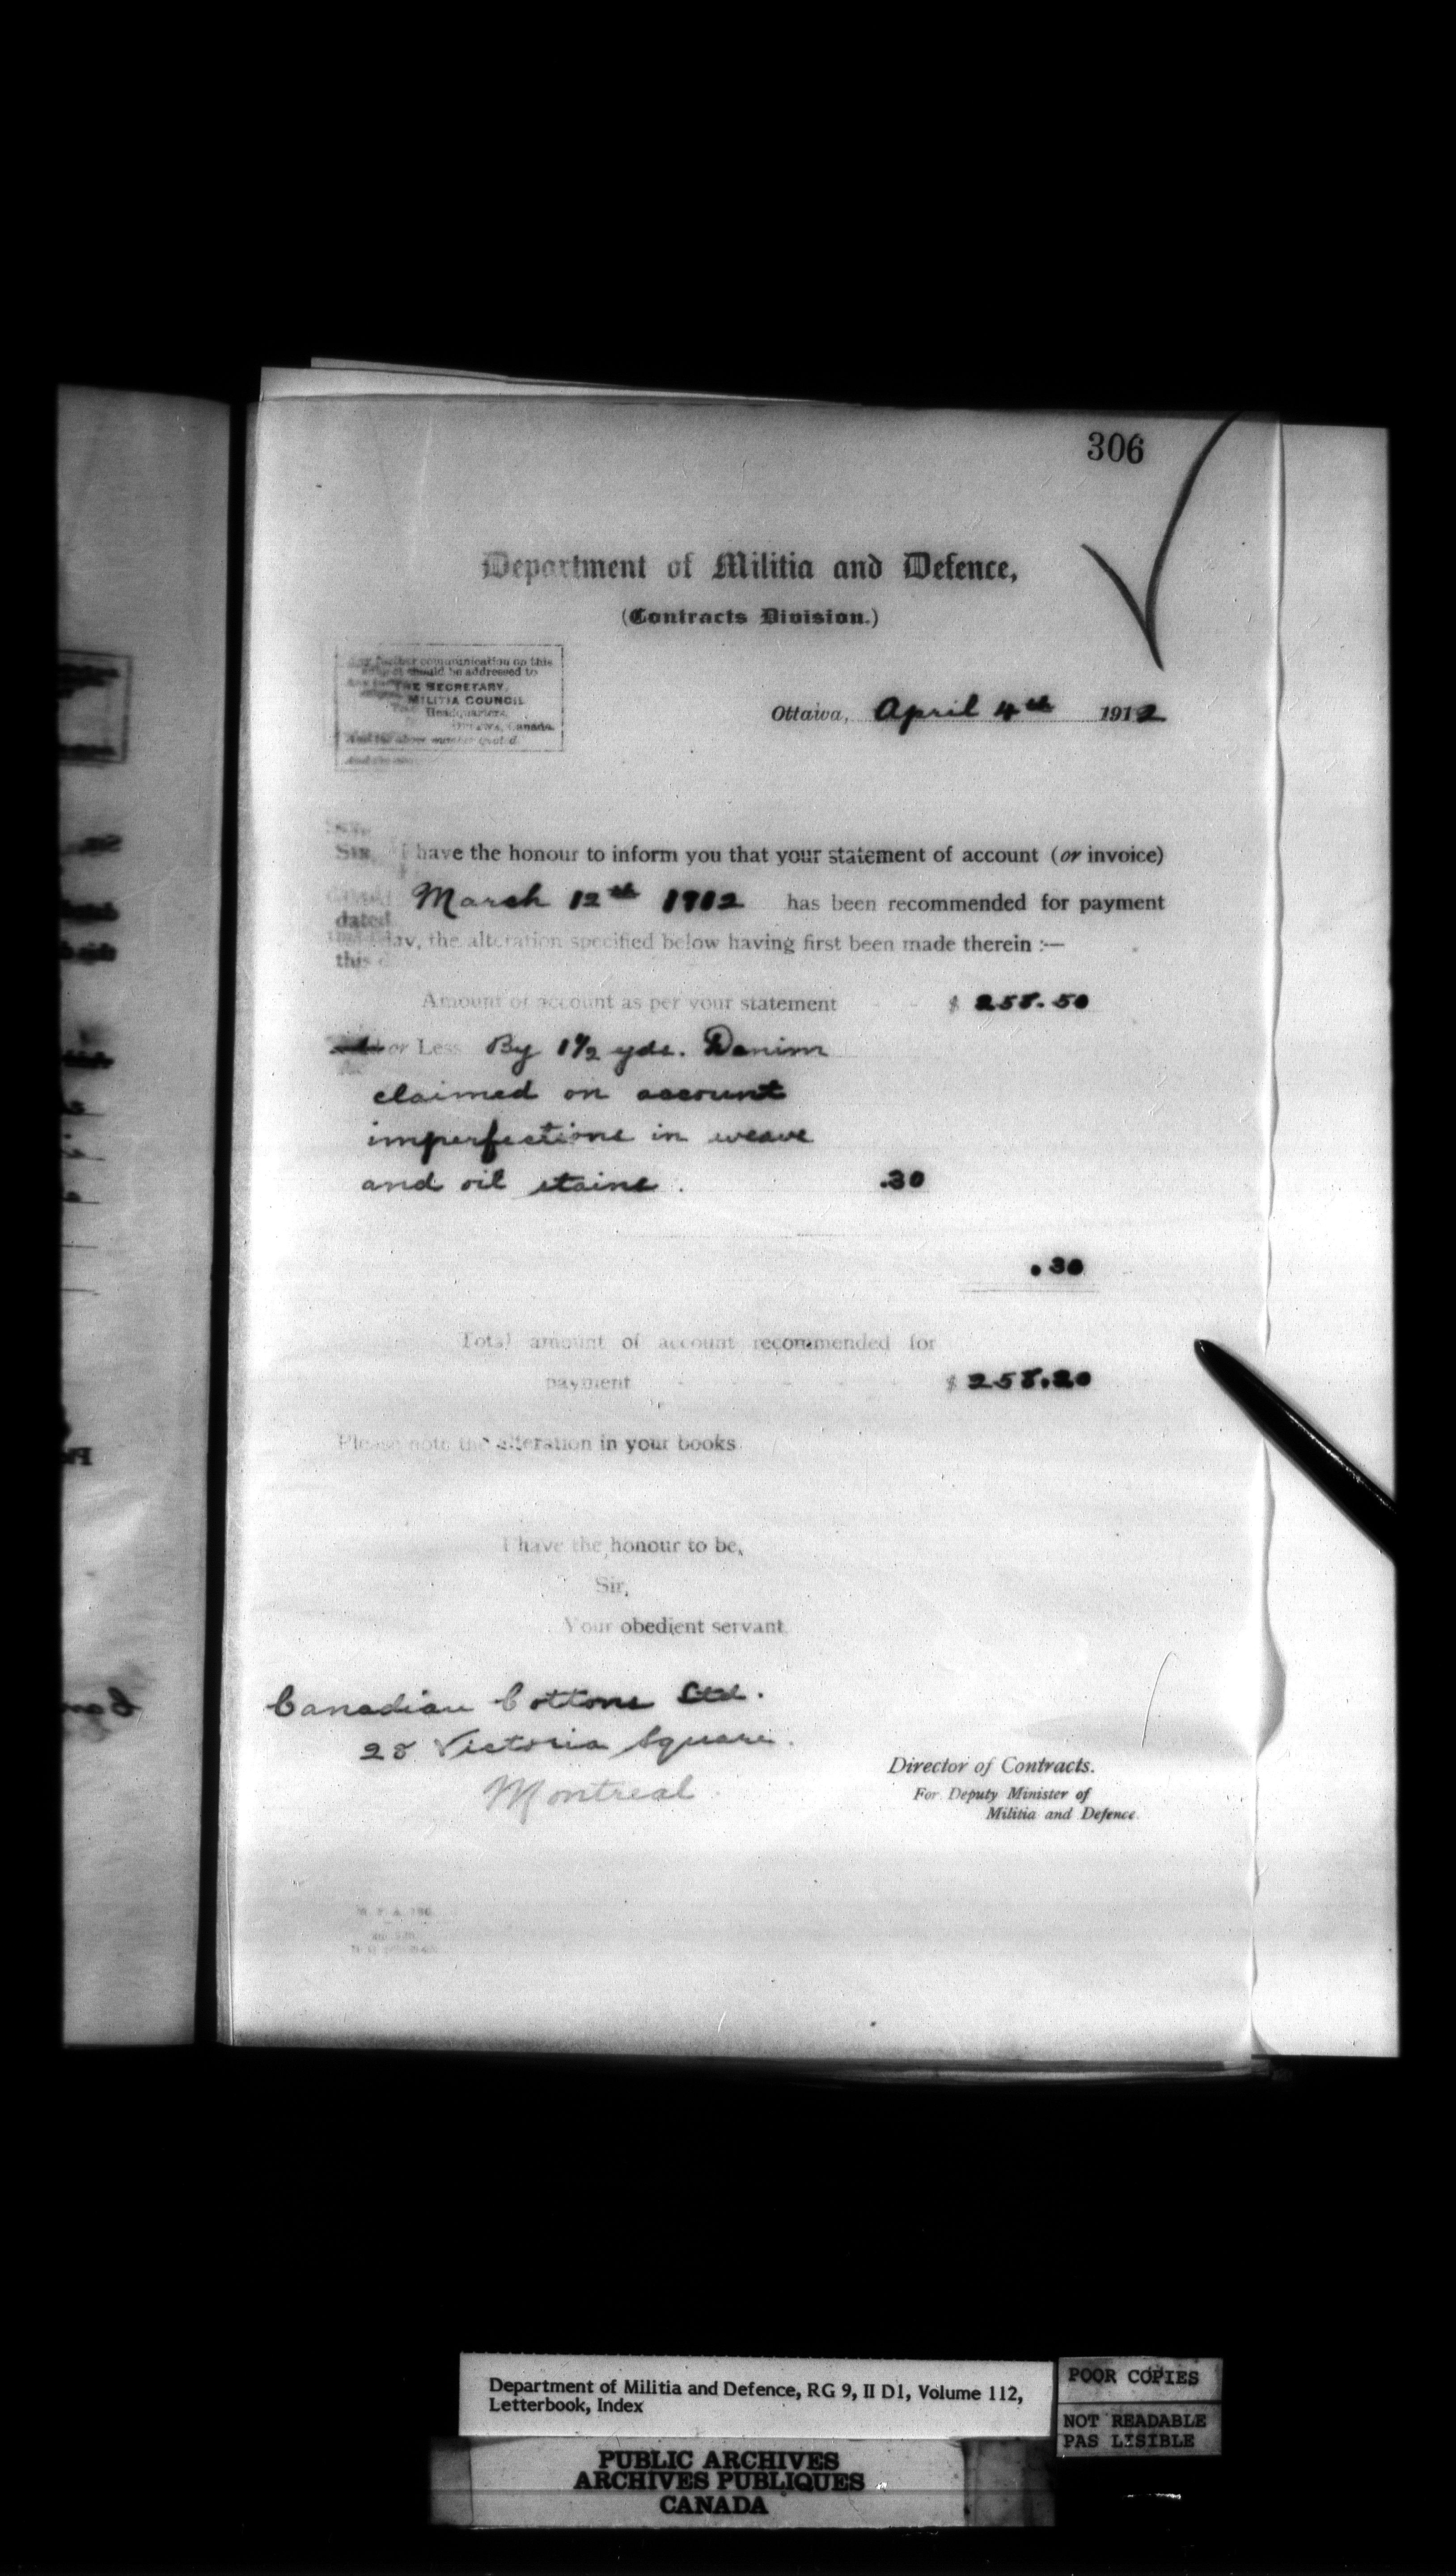 306
Department of Militia and Defence,
(Contracts Division.)
further communication on this
subject should be addressed to
THE SECRETARY,
MILITIA COUNCIL
Headquarters,
Ottawa, Canada.
And the above number quoted.
Ottawa, April 4th 1912
Sir,
I have the honour to inform you that your statement of account (or invoice)
dated March 12th 1912 has been recommended for payment
this day, the alteration specified below having first been made therein :—
Amount of account as per your statement - - $ 258.50
or Less By 1½ yds. Denim
claimed on account
imperfections in weave
and oil stains. .30
.30
Total amount of account recommended for
payment - - - $ 258.20
Please note the alteration in your books.
I have the honour to be,
Sir,
Your obedient servant,
Canadian Cottons Ltd.
28 Victoria Square.
Montreal
Director of Contracts.
For Deputy Minister of
Militia and Defence.
Department of Militia and Defence, RG 9, II D1, Volume 112,
Letterbook, Index
POOR COPIES
NOT READABLE
PAS LISIBLE
PUBLIC ARCHIVES
ARCHIVES PUBLIQUES
CANADA